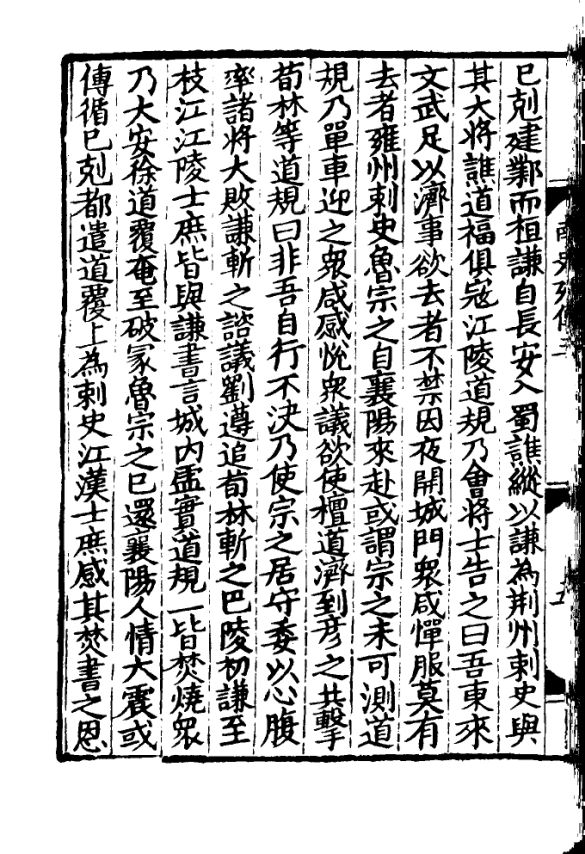 已剋建鄴而桓謙自長安入蜀譙縱以謙為荆州刺史與
其大將譙道福俱冦江陵道規乃會將士告之曰吾東來
文武足以濟事欲去者不禁因夜開城門衆咸憚服莫有
去者雍州刺史魯宗之自襄陽來赴或謂宗之未可測道
規乃單車迎之衆咸感恱衆議欲使檀道濟到彥之共擊
荀林等道規曰非吾自行不決乃使宗之居守委以心腹
率諸將大敗謙斬之諮議劉遵追荀林斬之巴陵初謙至
枝江江陵士庶皆與謙書言城内虛實道規一皆焚燒衆
乃大安徐道覆奄至破冢魯宗之已還襄陽人情大震或
傳循已剋都遣道覆上為刺史江漢士庶感其焚書之恩